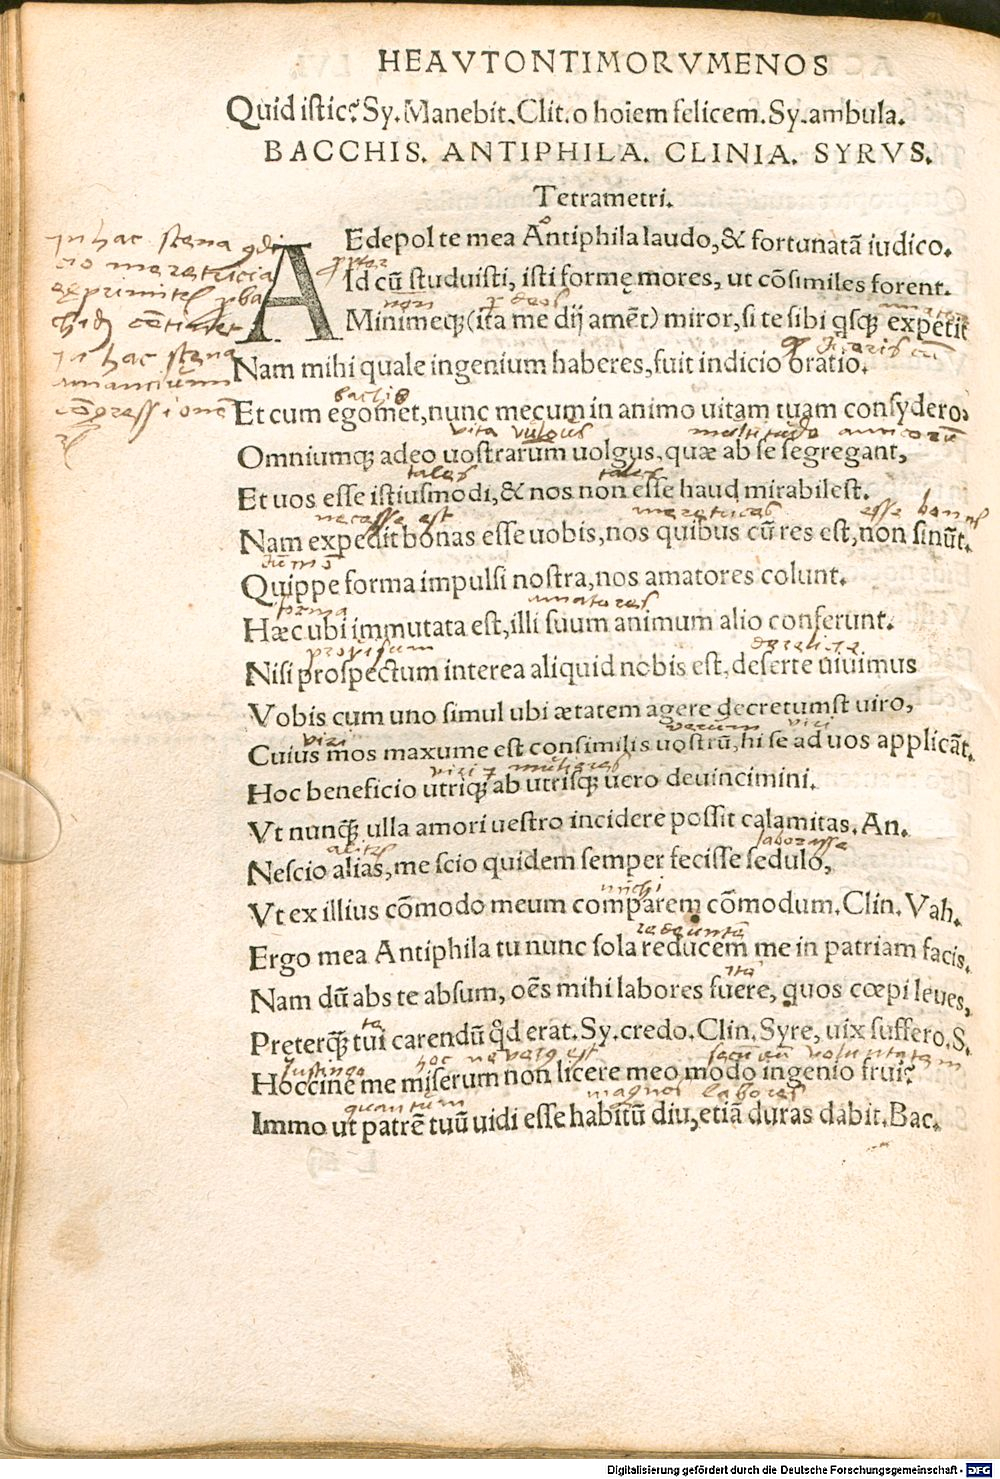 HEAVTONTIMORVMENOS
Quid istic? Sy. Manebit. Clit. o hoiem felicem. Sy. ambula.
BACCHIS. ANTIPHILA. CLINIA. SYRVS.
Tetrametri.
in hac scena
meretricia
exprimit
continet
in hac scena
amancium
congressionē
AEdepol te mea Antiphila laudo, & fortunatā iudico.
Id cū studuisti, isti formę mores, ut cōsimiles forent.
non
Minimeq̃ (ita me dij amēt) miror, si te sibi q̃sq̃ expetit
Nam mihi quale ingenium haberes, fuit indicio oratio.
bachis
Et cum egomet, nunc mecum in animo uitam tuam consydero.
vita vulgus multitudo amicorū
Omniumq̃ adeo uostrarum uolgus, quæ ab se segregant,
tales tales
Et uos esse istiusmodi, & nos non esse haud mirabilest.
necesse est meretrices esse bonas
Nam expedit bonas esse uobis, nos quibus cū res est, non sinūt.
Quippe forma impulsi nostra, nos amatores colunt.
forma amatores
Hæc ubi immutata est, illi suum animum alio conferunt.
provisum
Nisi prospectum interea aliquid nobis est, deserte uiuimus
Vobis cum uno simul ubi ætatem agere decretumst uiro,
viri verum viri
Cuius mos maxume est consimilis uostrū, hi se ad uos applicāt.
viri mulieres
Hoc beneficio utriq̃ ab utrisq̃ uero deuincimini.
Vt nunq̃ ulla amori uestro incidere possit calamitas. An.
laborasse
Nescio alias, me scio quidem semper fecisse sedulo,
michi
Vt ex illius cōmodo meum comparem cōmodum. Clin. Vah.
Ergo mea Antiphila tu nunc sola reducem me in patriam facis.
ita
Nam dū abs te absum, oēs mihi labores fuere, quos cœpi leues,
te
Preterq̃ tui carendū q̊d erat. Sy. credo. Clin. Syre, uix suffero. S.
hoc est secūdū voluntatem
Hoccine me miserum non licere meo modo ingenio frui?
quantum magnos labores
Immo ut patrē tuū uidi esse habitū diu, etiā duras dabit. Bac.
Digitalisierung gefördert durch die Deutsche Forschungsgemeinschaft - DFG